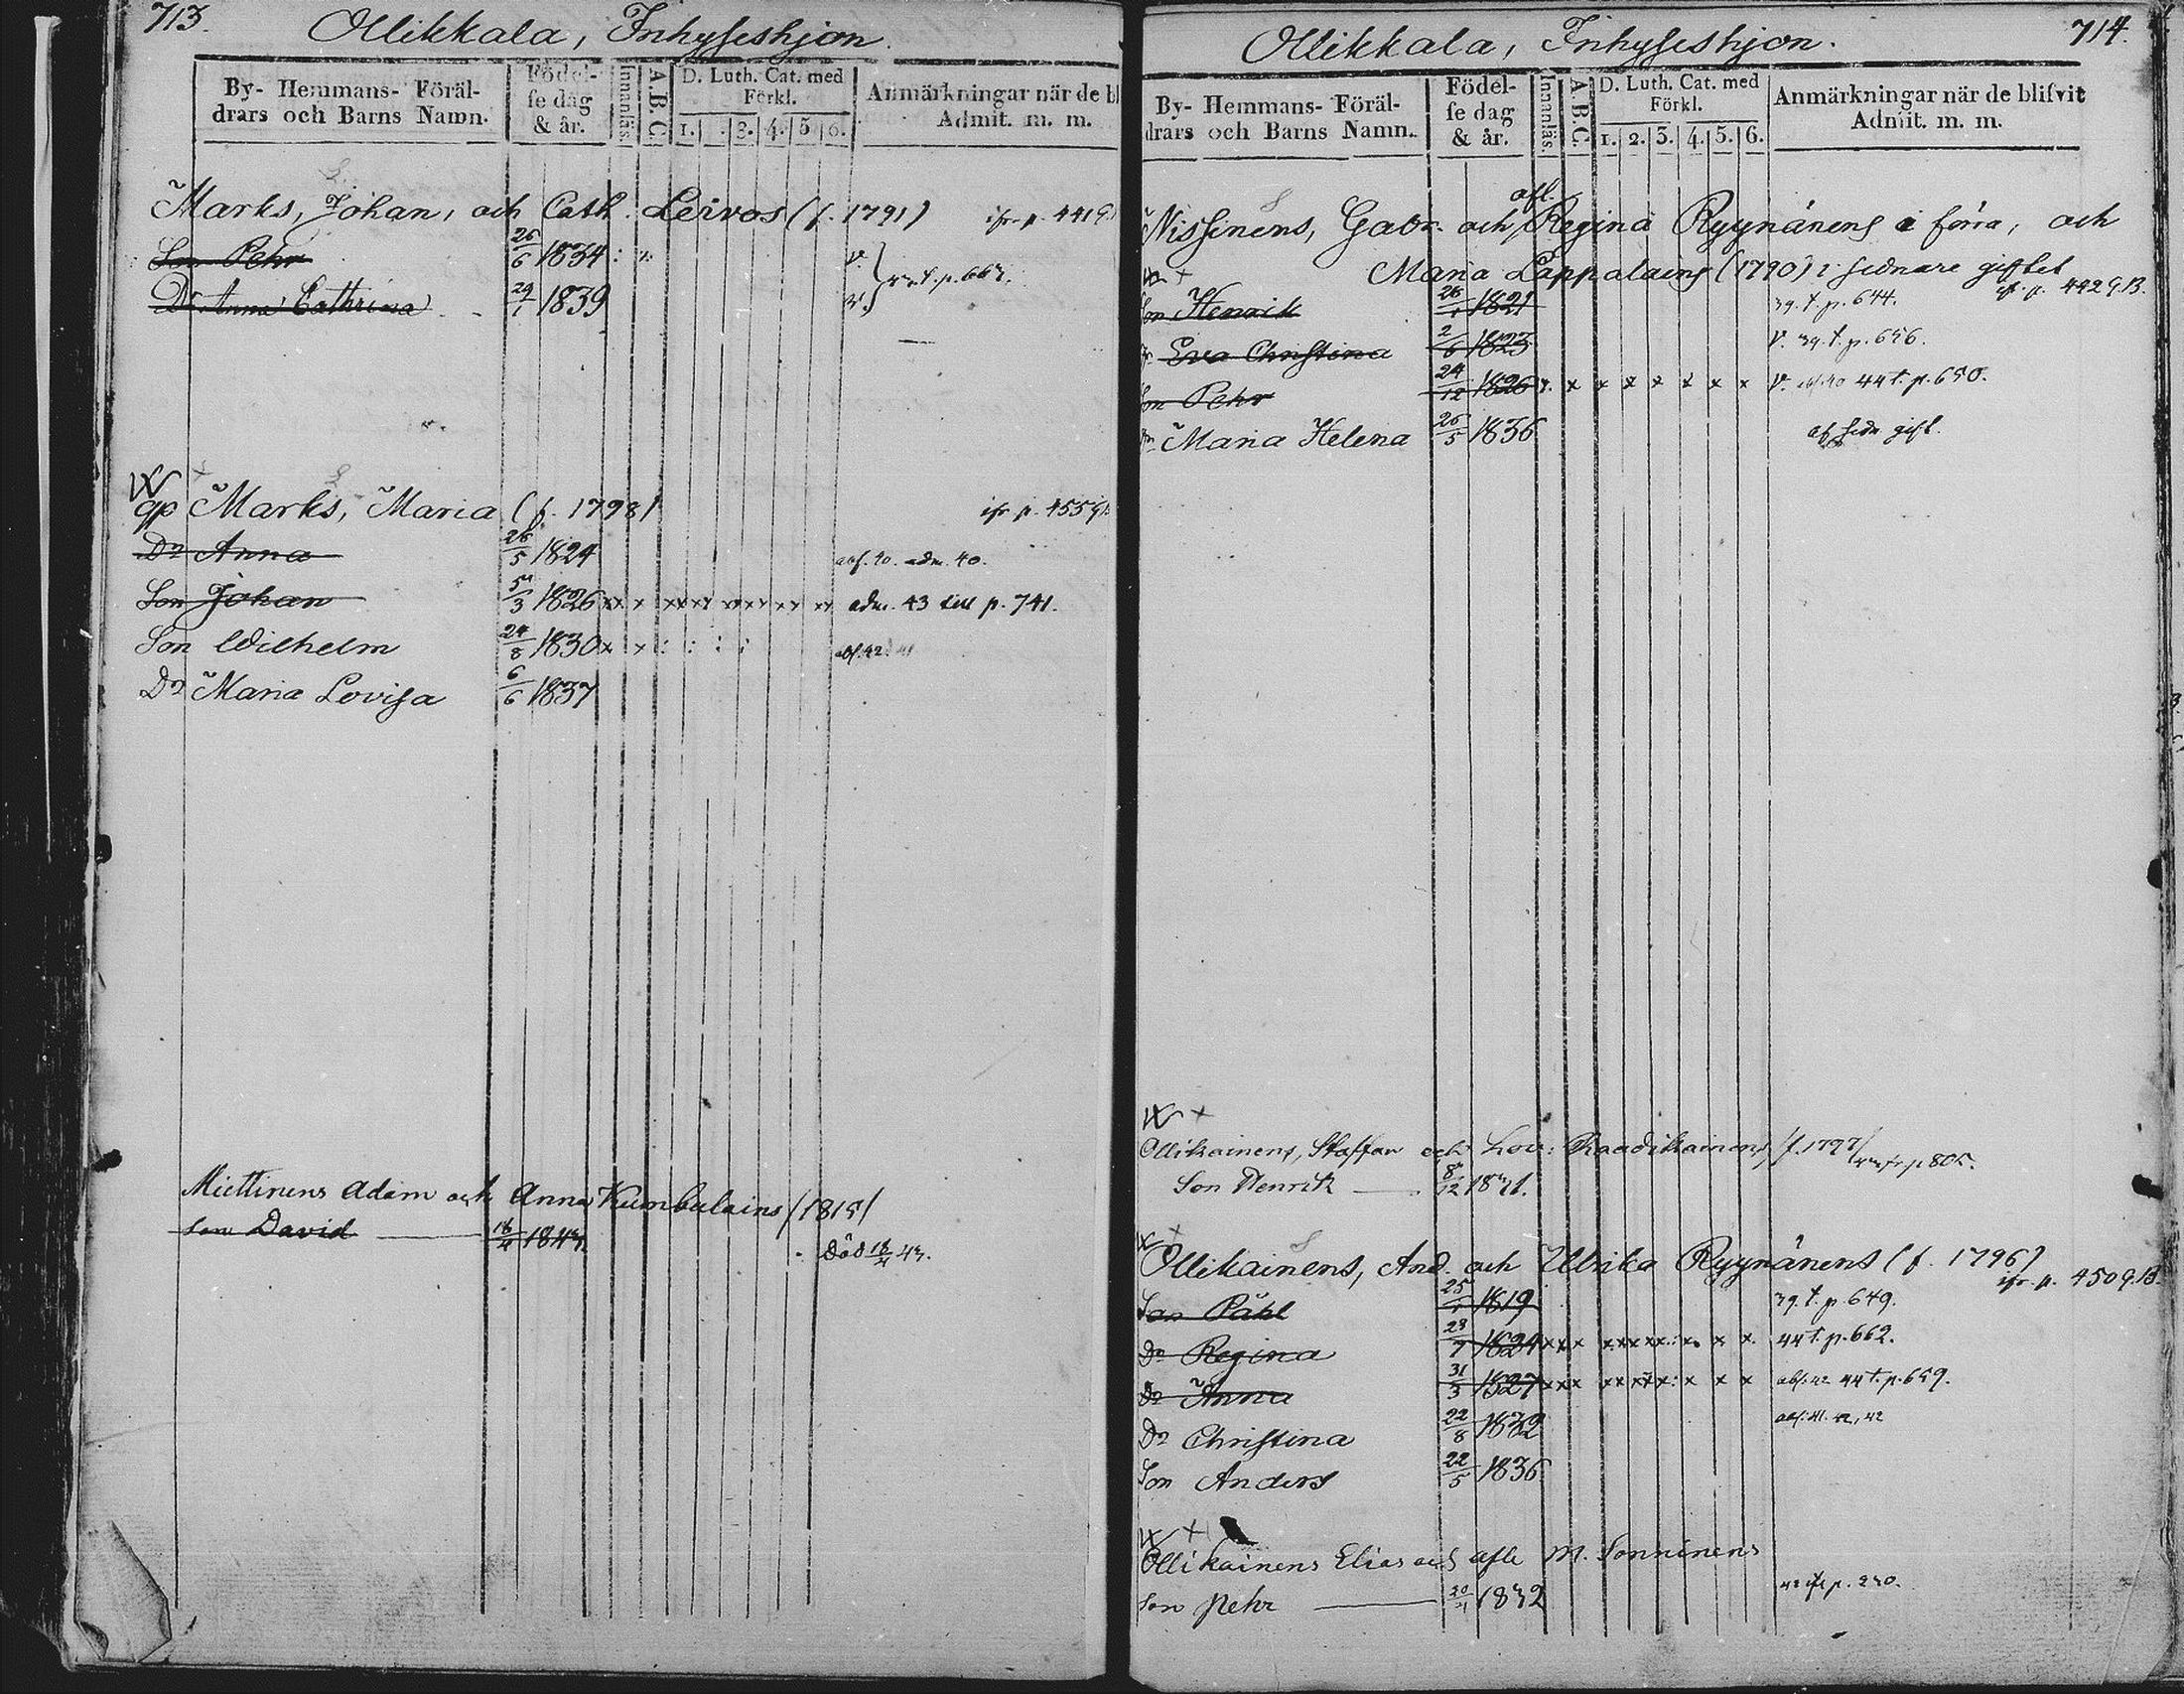 713.
Ollikkala, Inhyseshjon.
By- Hemmans- Föräl-
drars och Barns Namn.
Födel-
se dag
& år.
Innanläs.
A.B.C.
D. Luth. Cat. med
Förkl.
1. 3. 4. 5 6.
Anmärkningar när de bl
Admit. m. m.
Marks, Johan, och Cath. Leivos (f. 1791) p. 441
Son Pehr 26/6 1834 v.
Dr Anna Cathrina 29/1 1839 v. t. p. 667.
Marks, Maria (f. 1798) p. 455
Dr Anna 26/5 1824 abs. 40. adm. 40.
Son Johan 5/3 1826 xx x xxxx xxxx xx xx adm. 43 till p. 741.
Son Wilhelm 24/8 1830 x x : : : : abs. 42
Dr Maria Lovisa 6/6 1837
Miettinens Adam och Anna Kumbulains (1815)
Son David 1843. Död 18/4 43.
714.
Ollikkala, Inhyseshjon.
By- Hemmans- Föräl-
drars och Barns Namn.
Födel-
se dag
& år.
Innanläs.
A.B.C.
D. Luth. Cat. med
Förkl.
1. 2. 3. 4. 5. 6.
Anmärkningar när de blifvit
Admit. m. m.
afl.
Nissinens, Gabr. och Regina Ryynänens i förra, och
Maria Lappalains (1790) i sednare giftet
p. 442 G.B.
Son Henrik 26/1 1821 39. t. p. 644.
Dr Eva Christina 2/6 1823 v. 39. t. p. 656.
Son Pehr 24/12 1826 x. x x x x x x x v. abs. 40 44 t. p. 650.
Dr Maria Helena 26/5 1836 af sedn. gift.
Ollikainens, Staffan och Lov: Raadikainens (f. 1797) p 805.
Son Henrik 8/12 1831.
Ollikainens, And. och Ulrika Ryynänens (f. 1796)
p. 450 G.B.
Son Påhl 25/1 1819 39. t. p. 649.
Dr Regina 28/7 1824 xxx xxxxx: x. x x. 44 t. p. 662.
Dr Anna 31/3 1827 xxx xxxxx: x x x abs. 42 44 t. p. 659.
Dr Christina 22/8 1832 abs. 41. 42, 42
Son Anders 22/5 1836
Ollikainens Elias och afl. M. Sonninens
Son Pehr 1832 p. 230.